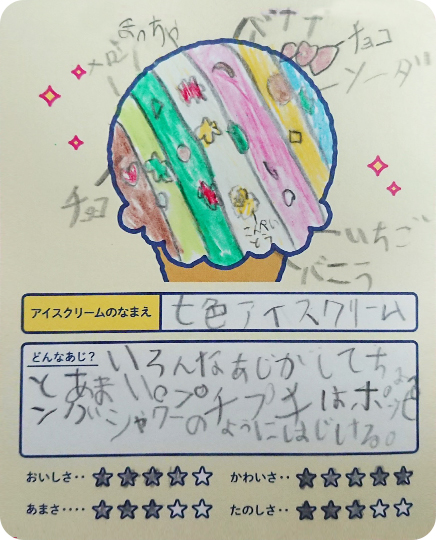 まっちゃ
バナナ
チョコ
メロン
ソーダ
チョコ
こんぺい
とう
いちご
バニラ
アイスクリームのなまえ
七色アイスクリーム
どんなあじ?
いろんなあじがしてちょっ
とあまい。プチプチは
シャワーのようにはじける。
おいしさ‥
かわいさ‥
あまさ‥‥
たのしさ‥